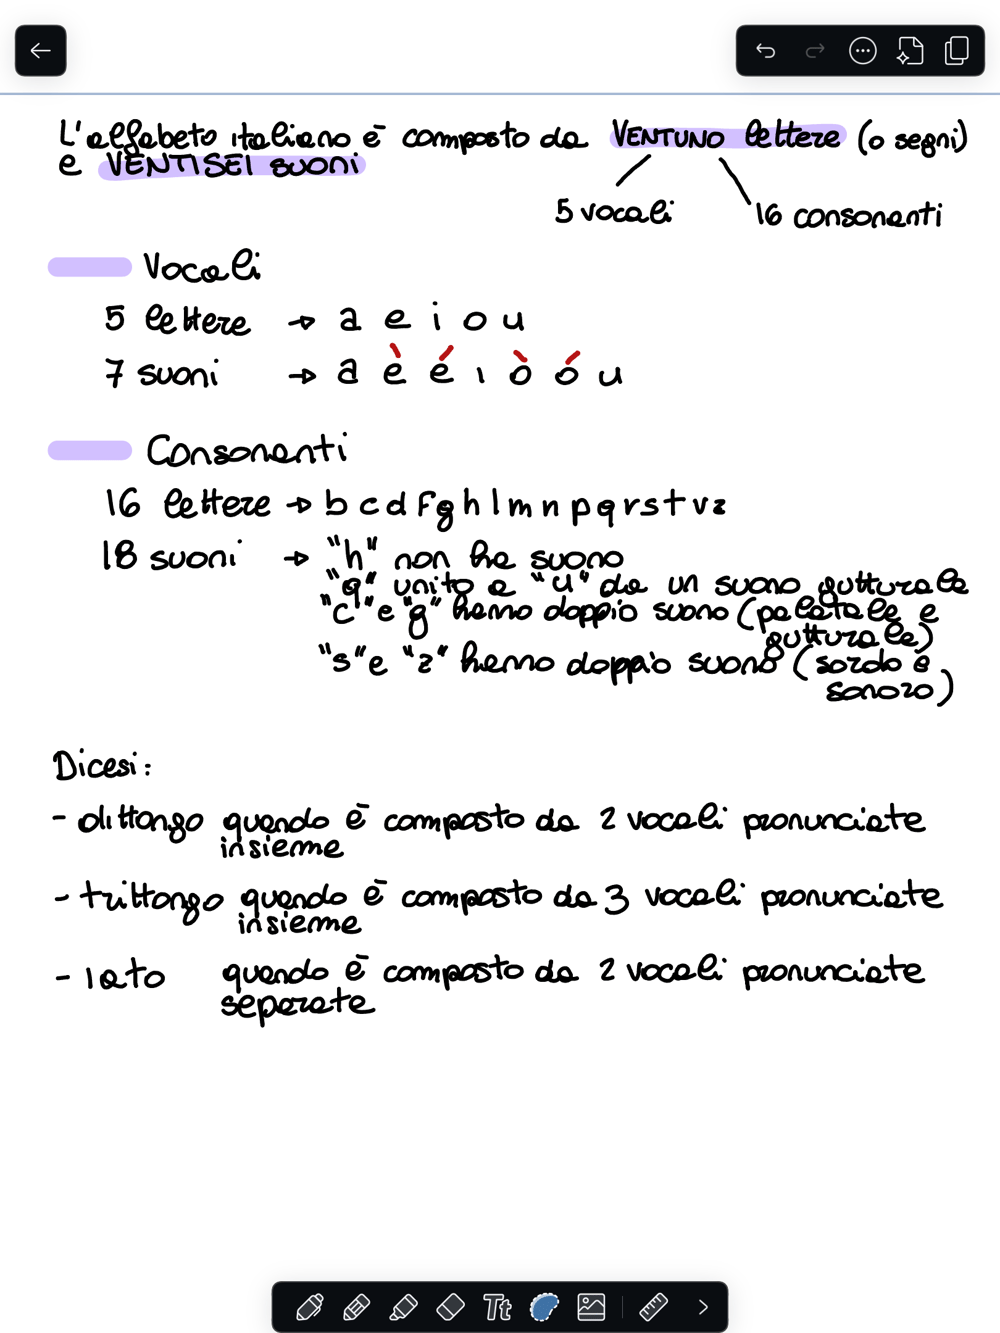 L'alfabeto italiano è composto da VENTUNO lettere (o segni)
e VENTISEI suoni
5 vocali 16 consonanti
Vocali
5 lettere → a e i o u
7 suoni → a è é i ò ó u
Consonanti
16 lettere → b c d f g h l m n p q r s t v z
18 suoni → "h" non ha suono
"q" unito a "u" da un suono gutturale
"c" e "g" hanno doppio suono (palatale e
gutturale)
"s" e "z" hanno doppio suono (sordo e
sonoro)
Dicesi:
- dittongo quando è composto da 2 vocali pronunciate
insieme
- trittongo quando è composto da 3 vocali pronunciate
insieme
- iato quando è composto da 2 vocali pronunciate
separate
Tt